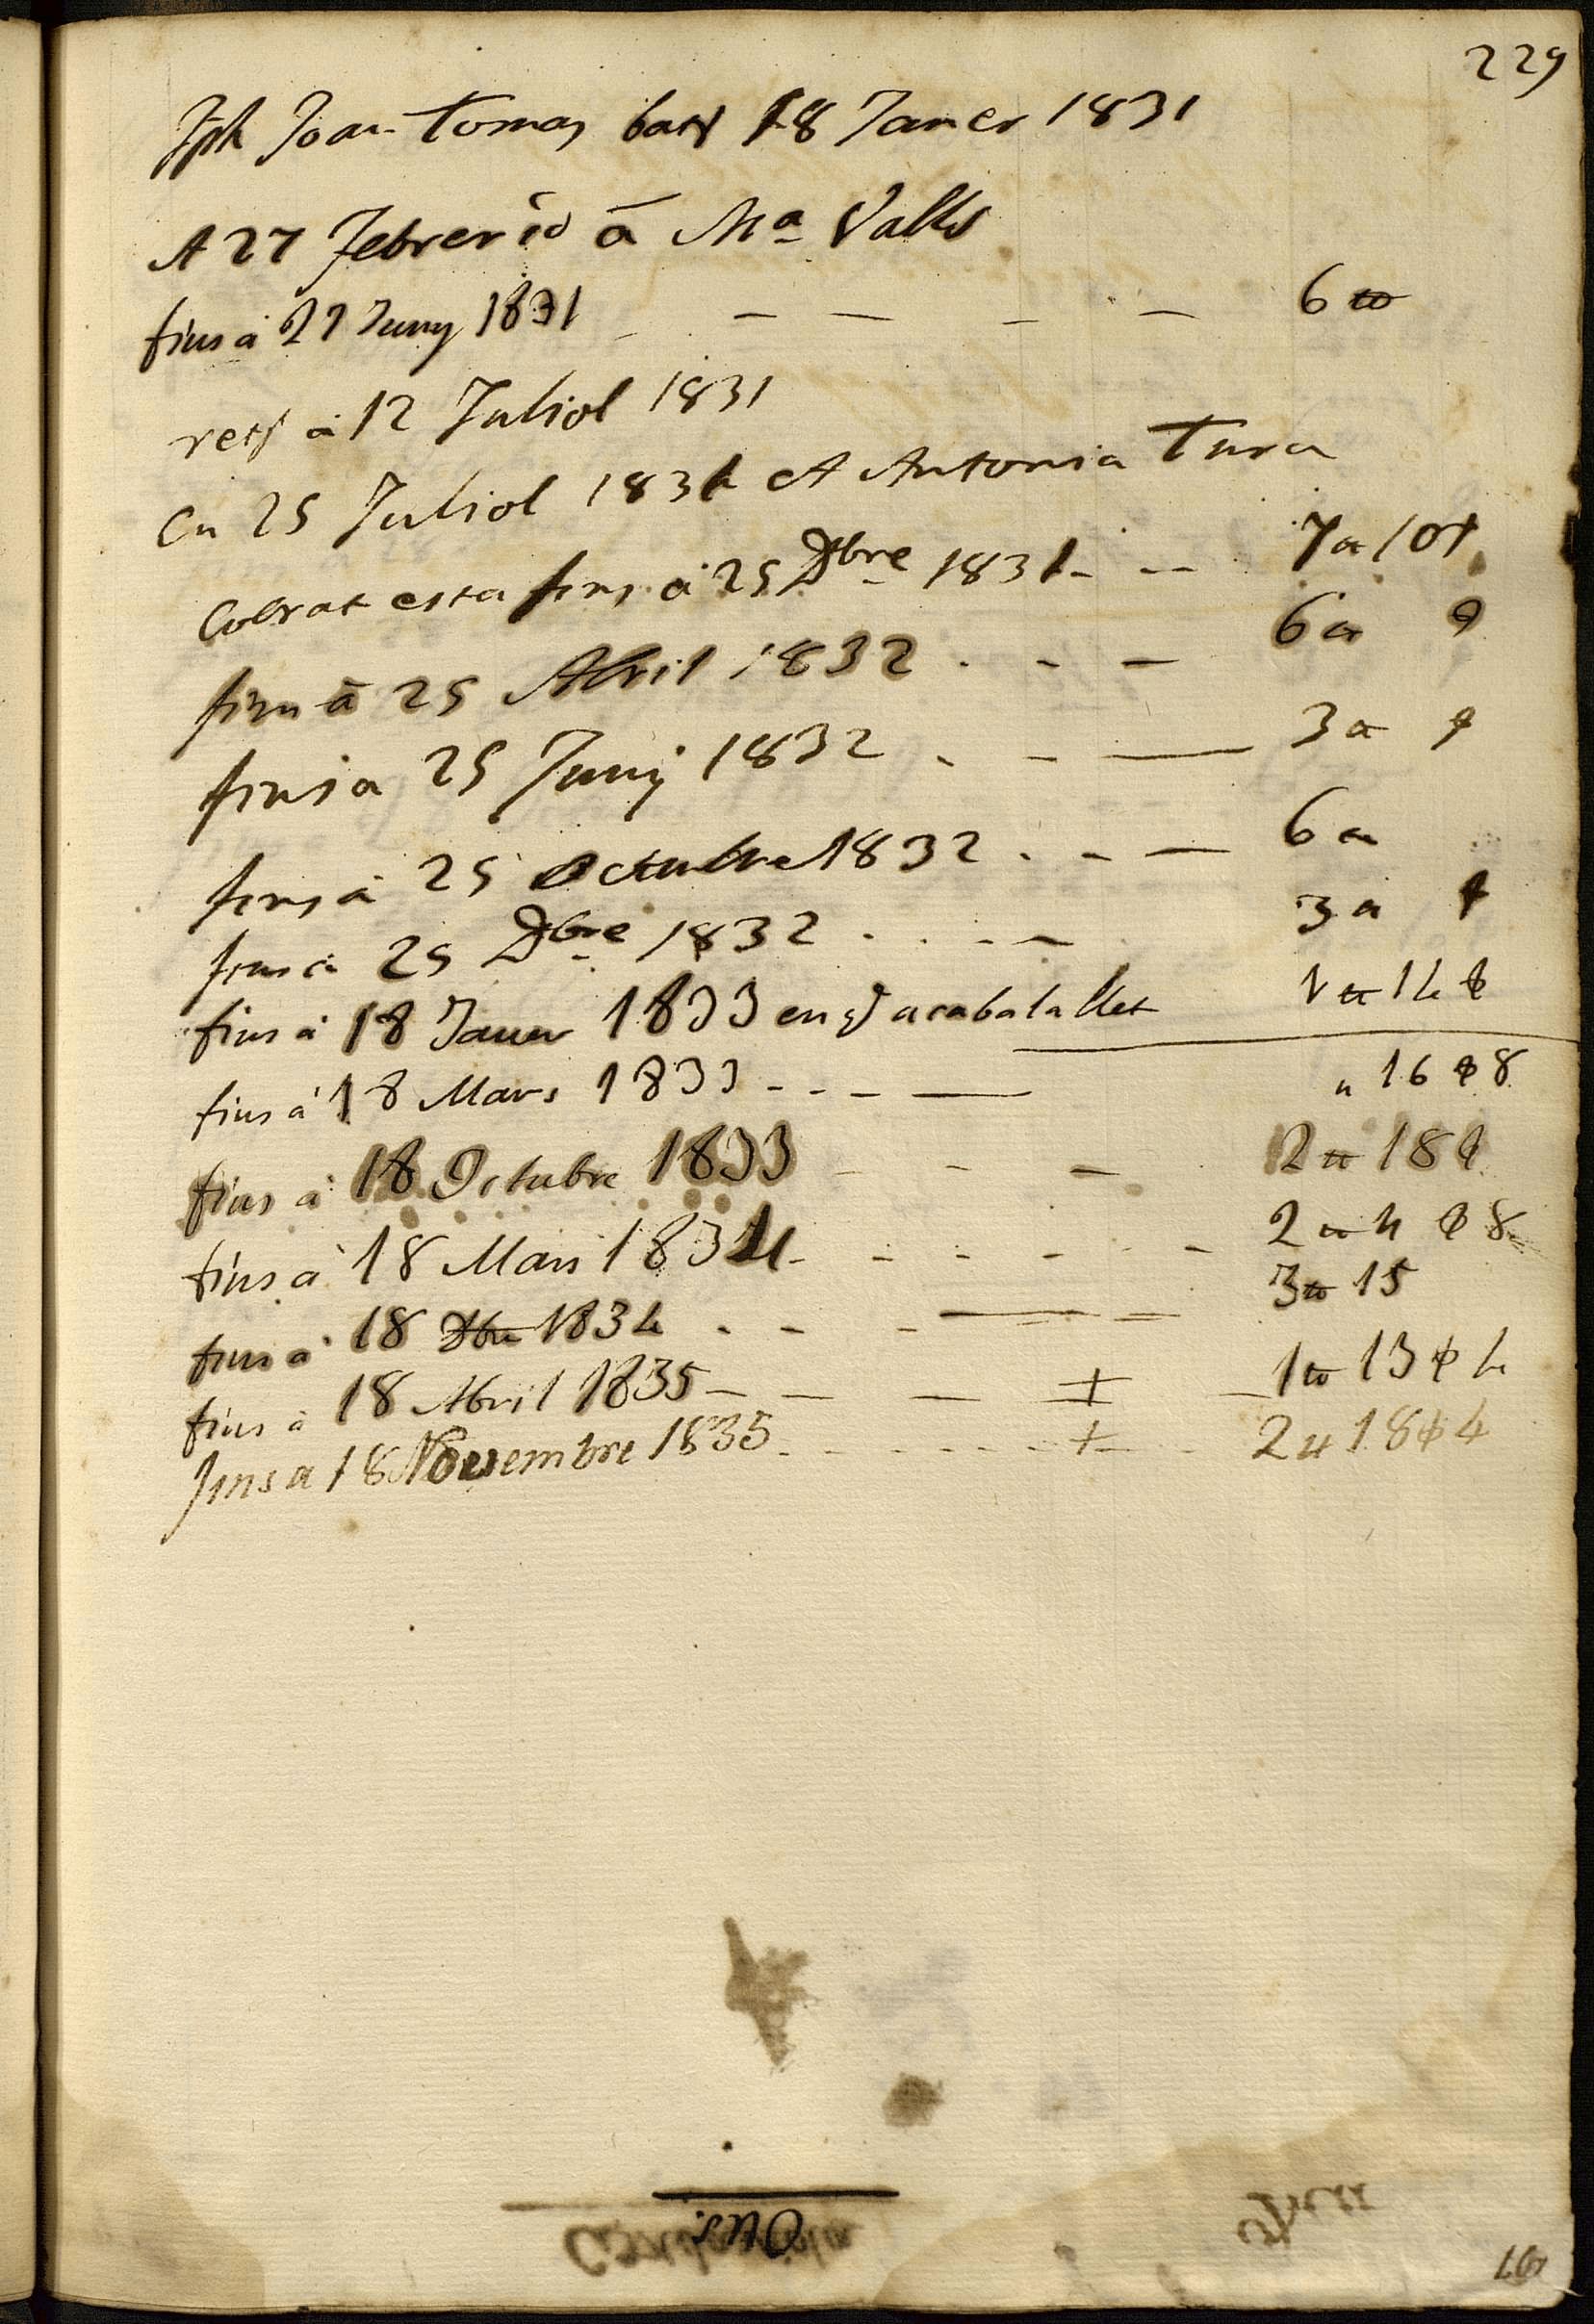 229
Jph Joan Tomas bat 18 Janer 1831
A 27 Febrer id â Ma Valls
fins á 27 Juny 1831 — — — — 6 tt
á 12 Juliol 1831
en 25 Juliol 1831 A Antonia Tura
Cobrat esta fins á 25 Dbre 1831 - -- 7 tt 10 s
fins â 25 Abril 1832 . - — 6 tt s
fins a 25 Juny 1832 . - — 3 tt s
fins á 25 Octubre 1832 . - — 6 tt
fins á 25 Dbre 1832 . . - — 3 tt s
fins á 18 Janer 1833 en q acaba la llet 1 tt 14 s
fins á 18 Mars 1833 - - - — " 16 s 8
fins á 18 Octubre 1833 - - — 2 tt 18 s
fins á 18 Mars 1834 - - - - - - 2 tt 4 s 8
fins á 18 Dbre 1834 . - - — 3 tt 15
fins á 18 Abril 1835 — — — + — 1 tt 13 s 4
fins a 18 Novembre 1835 - - - - + - - 2 tt 18 s 4
Ous